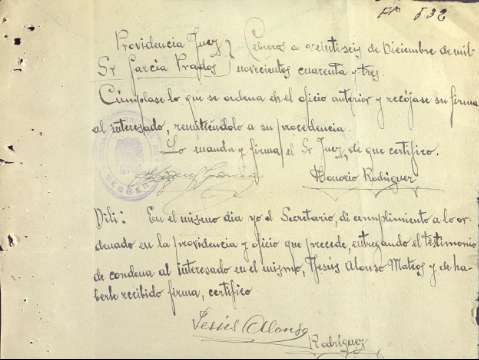 Fº 832
Providencia Juez } Cebreros a veintiseis de Diciembre de mil
Sr García Prados } novecientos cuarenta y tres
Cúmplase lo que se ordena en el oficio anterior y recójase su firma
al interesado, remitiéndolo a su procedencia.
Lo manda y firma el Sr Juez, de que certifico.
Honorio Rodríguez
Dili: En el mismo dia yo el Secretario, di cumplimiento a lo or-
denado en la providencia y oficio que precede, entregando el testimonio
de condena al interesado en el mismo, Jesús Alonso Mateos y de ha-
berle recibido firma, certifico
Jesús Alonso
Rodríguez